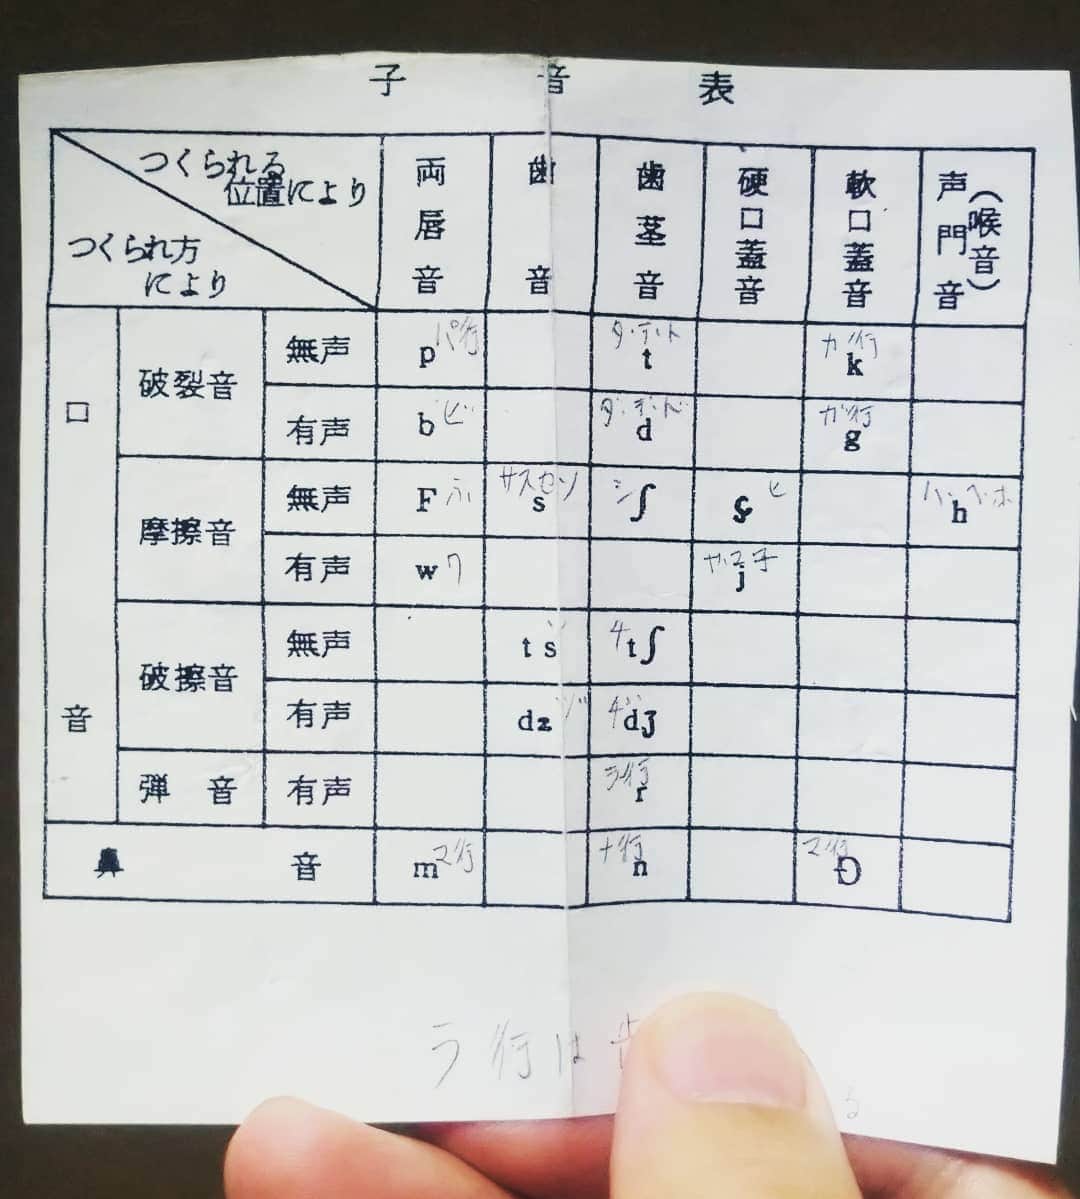 子音表
つくられる
位置により
つくられ方
により
両唇音 歯音 歯茎音 硬口蓋音 軟口蓋音 声門音(喉音)
口音
破裂音 無声 p パ行 t タ・テ・ト k カ行
有声 b ビ d ダ・デ・ド g ガ行
摩擦音 無声 F ふ s サスセソ ʃ シ ç ヒ h ハ・ヘ・ホ
有声 w ワ j
破擦音 無声 ts tʃ チ
有声 dz ヅ dʒ ヂ
弾音 有声 r ラ行
鼻音 m マ行 n ナ行 マ行
ラ行は
る